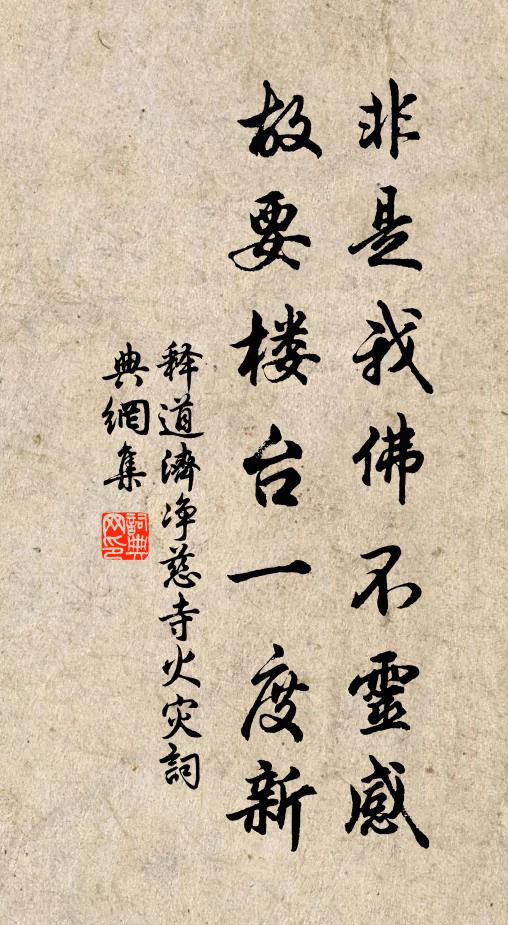 非是我佛不靈感
故要楼台一度新
释道濟净慈寺火灾詞
典網集
詞典
网印